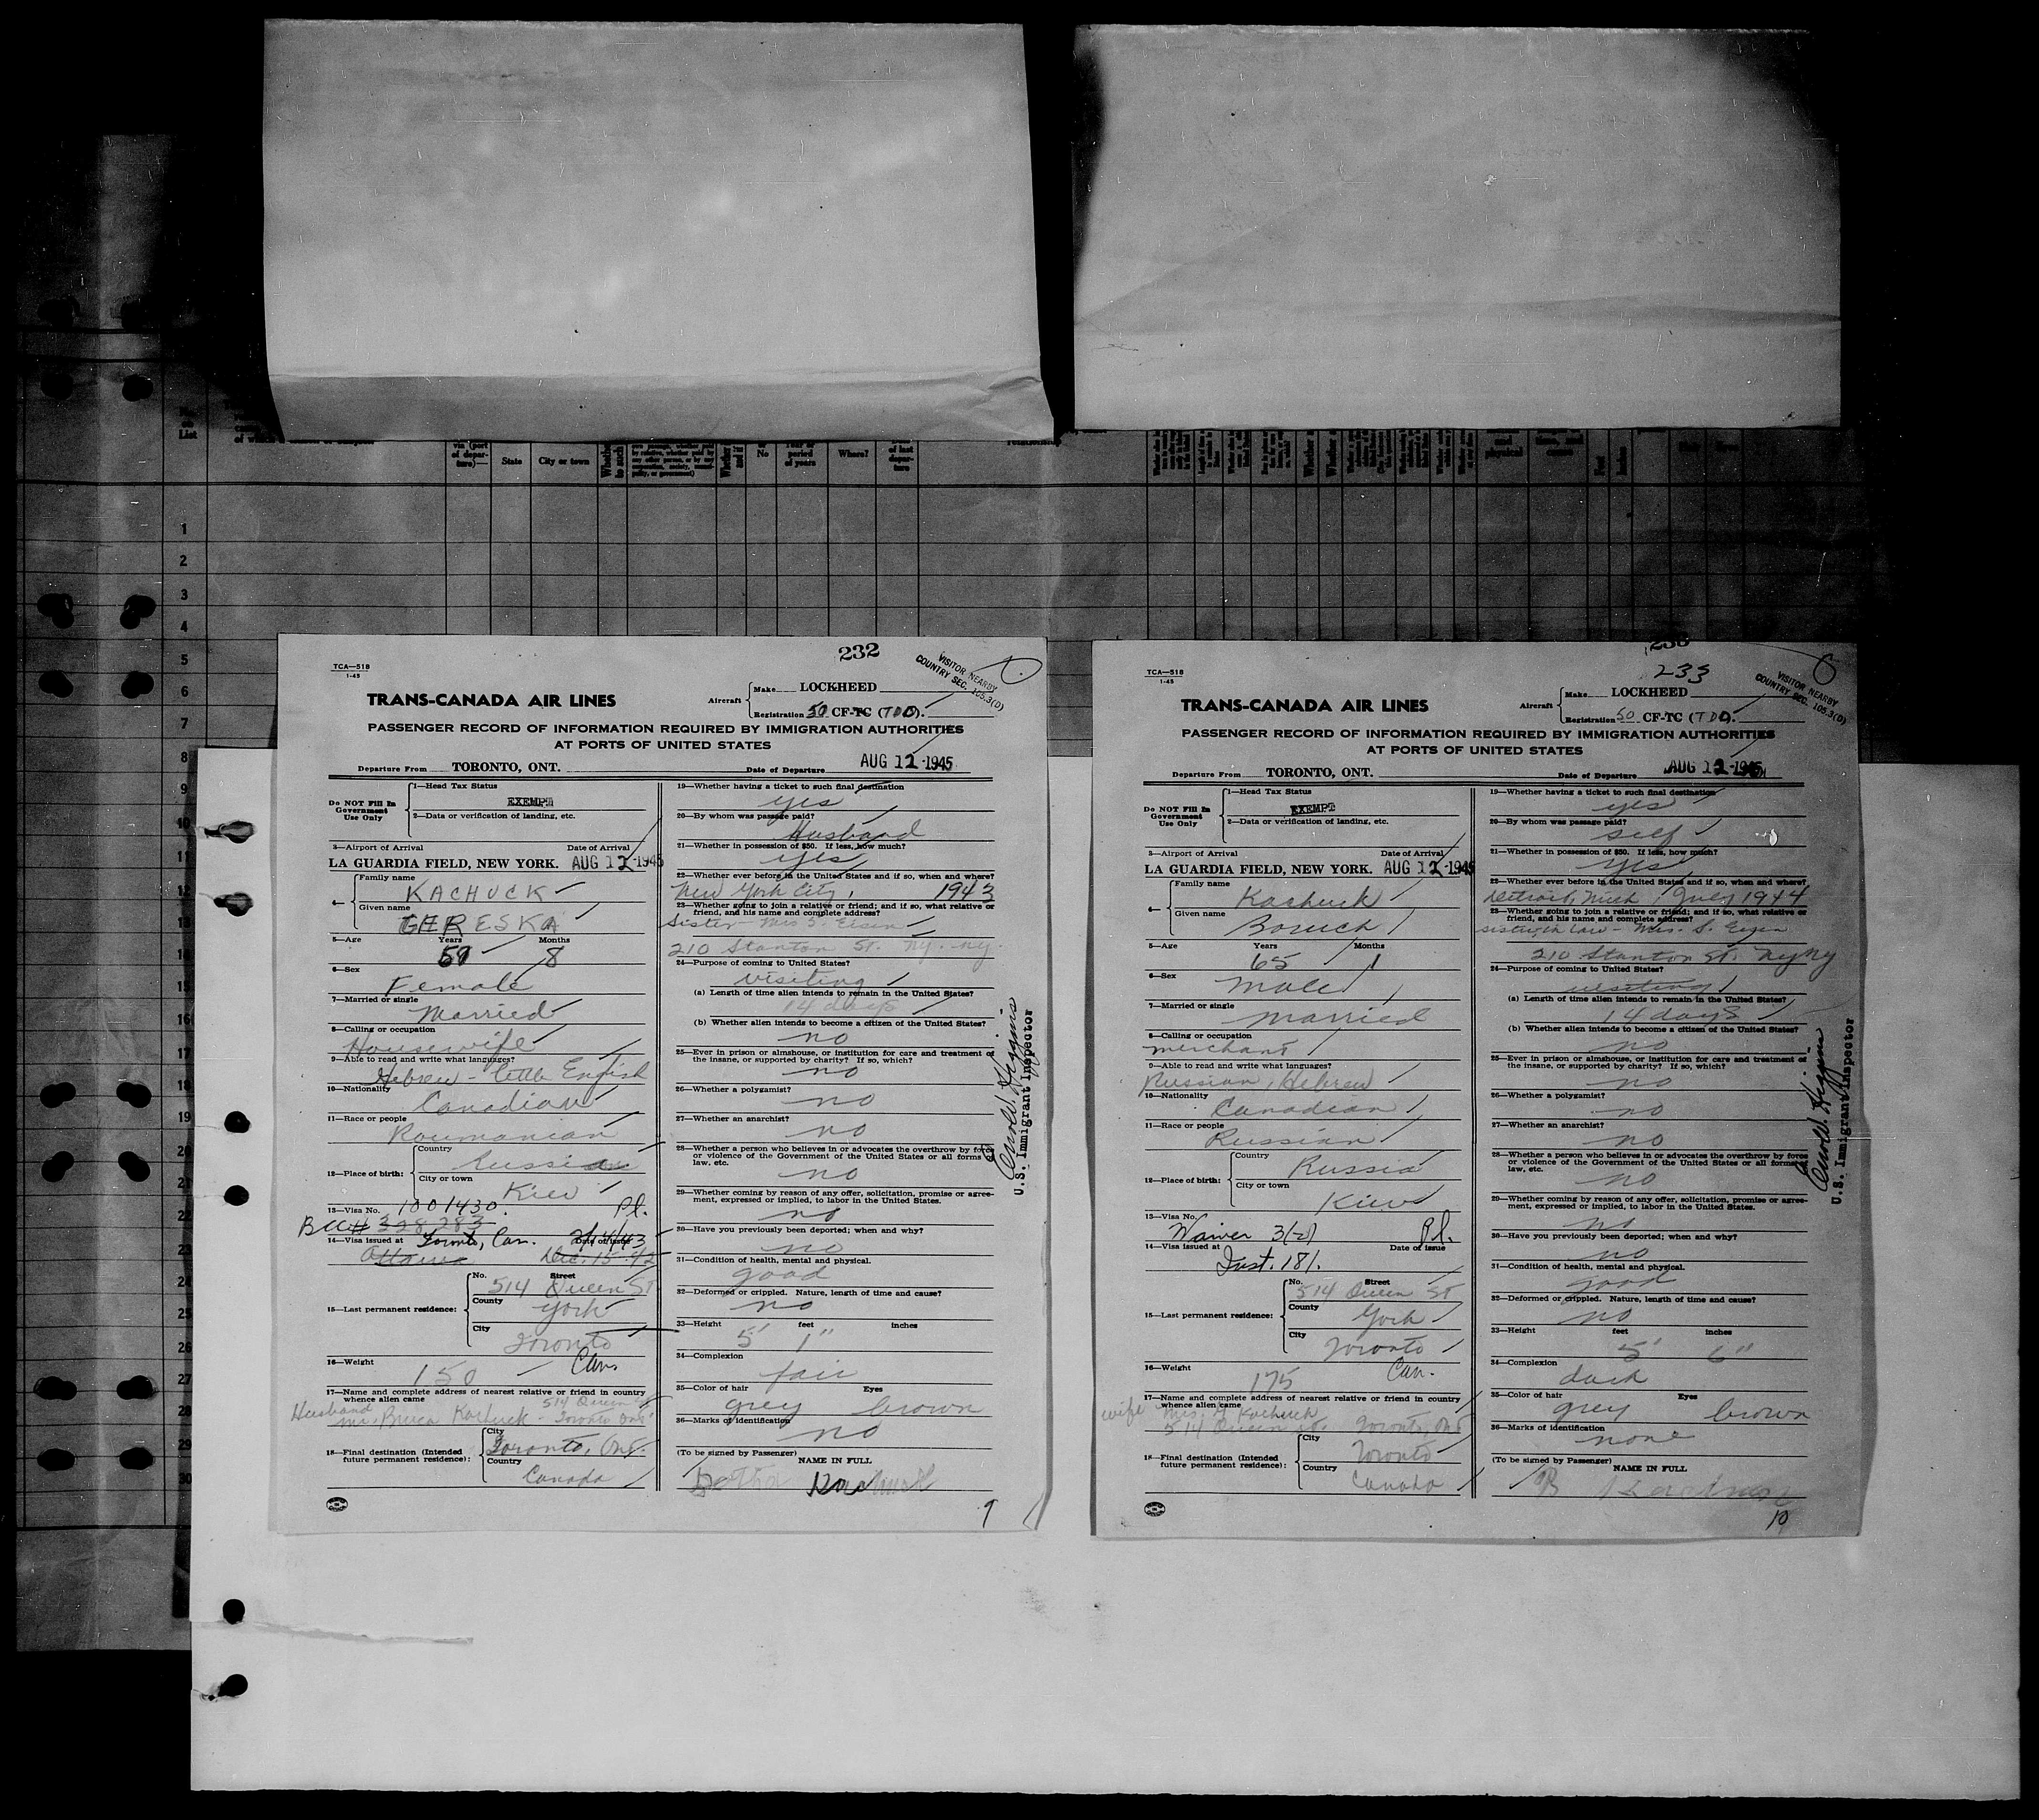 List
of which
via (port
of depar-
ture)—
State
City or town
No
period
of years
Where?
of last
depar-
ture
1
2
3
4
5
6
7
8
9
10
11
12
13
14
15
16
17
18
19
20
21
22
23
24
25
26
27
28
29
30
232
TCA—518
1-45
VISITOR NEARBY
COUNTRY SEC. 105.3(D)
TRANS-CANADA AIR LINES
Aircraft
Make LOCKHEED
Registration 50 CF-TC (TDD).
PASSENGER RECORD OF INFORMATION REQUIRED BY IMMIGRATION AUTHORITIES
AT PORTS OF UNITED STATES
Departure From TORONTO, ONT. Date of Departure AUG 12 1945
Do NOT Fill In
Government
Use Only
1—Head Tax Status
EXEMPT
2—Data or verification of landing, etc.
3—Airport of Arrival Date of Arrival
LA GUARDIA FIELD, NEW YORK. AUG 12 1945
4—
Family name
KACHUCK
Given name
GHRESKA
5—Age Years Months
8
6—Sex
Female
7—Married or single
Married
8—Calling or occupation
Housewife
9—Able to read and write what languages?
Hebrew - little English
10—Nationality
Canadian
11—Race or people
Roumanian
12—Place of birth:
Country
Russian
City or town
Kiev
13—Visa No. 1001430. Pl.
BCC# 328283
14—Visa issued at Toronto, Can. Date of issue 2/4/43
Ottawa Dec. 15-42
15—Last permanent residence:
No. Street
514 Queen St
County
York
City
Toronto
Can.
16—Weight
150
17—Name and complete address of nearest relative or friend in country
whence alien came
514 Queen St
Husband Mr. Kachuck - Toronto Ont.
18—Final destination (Intended
future permanent residence):
City
Toronto, Ont.
Country
Canada
19—Whether having a ticket to such final destination
yes
20—By whom was passage paid?
Husband
21—Whether in possession of $50. If less, how much?
yes
22—Whether ever before in the United States and if so, when and where?
New York City, 1943
23—Whether going to join a relative or friend; and if so, what relative or
friend, and his name and complete address?
Sister - Mrs S. Eisen
210 Stanton St. N.Y. N.Y.
24—Purpose of coming to United States?
visiting
(a) Length of time alien intends to remain in the United States?
14 days
(b) Whether alien intends to become a citizen of the United States?
no
25—Ever in prison or almshouse, or institution for care and treatment of
the insane, or supported by charity? If so, which?
no
26—Whether a polygamist?
no
27—Whether an anarchist?
no
28—Whether a person who believes in or advocates the overthrow by force
or violence of the Government of the United States or all forms of
law, etc.
no
29—Whether coming by reason of any offer, solicitation, promise or agree-
ment, expressed or implied, to labor in the United States.
no
30—Have you previously been deported; when and why?
no
31—Condition of health, mental and physical.
good
32—Deformed or crippled. Nature, length of time and cause?
no
33—Height feet inches
5' 1"
34—Complexion
fair
35—Color of hair Eyes
grey brown
36—Marks of identification
no
(To be signed by Passenger)
NAME IN FULL
Kachuck
9
U.S. Immigrant Inspector
233
233
TCA—518
1-45
VISITOR NEARBY
COUNTRY SEC. 105.3(D)
TRANS-CANADA AIR LINES
Aircraft
Make LOCKHEED
Registration 50 CF-TC (TDD).
PASSENGER RECORD OF INFORMATION REQUIRED BY IMMIGRATION AUTHORITIES
AT PORTS OF UNITED STATES
Departure From TORONTO, ONT. Date of Departure AUG 12 1945
Do NOT Fill In
Government
Use Only
1—Head Tax Status
EXEMPT
2—Data or verification of landing, etc.
3—Airport of Arrival Date of Arrival
LA GUARDIA FIELD, NEW YORK. AUG 12 1945
4—
Family name
Kachuck
Given name
Boruch
5—Age Years Months
65 1
6—Sex
Male
7—Married or single
Married
8—Calling or occupation
merchant
9—Able to read and write what languages?
Russian, Hebrew
10—Nationality
Canadian
11—Race or people
Russian
12—Place of birth:
Country
Russia
City or town
Kiev
13—Visa No.
Waiver 3(2) Pl.
14—Visa issued at Date of issue
Inst. 181.
15—Last permanent residence:
No. Street
514 Queen St
County
York
City
Toronto
Can.
16—Weight
175
17—Name and complete address of nearest relative or friend in country
whence alien came
wife Mrs. G Kachuck
514 Queen St. Toronto, Ont
18—Final destination (Intended
future permanent residence):
City
Toronto
Country
Canada
19—Whether having a ticket to such final destination
yes
20—By whom was passage paid?
self
21—Whether in possession of $50. If less, how much?
yes
22—Whether ever before in the United States and if so, when and where?
Detroit, Mich, July 1944
23—Whether going to join a relative or friend; and if so, what relative or
friend, and his name and complete address?
sister in law - Mrs. S. Eisen
210 Stanton St. NY NY
24—Purpose of coming to United States?
visiting
(a) Length of time alien intends to remain in the United States?
14 days
(b) Whether alien intends to become a citizen of the United States?
no
25—Ever in prison or almshouse, or institution for care and treatment of
the insane, or supported by charity? If so, which?
no
26—Whether a polygamist?
no
27—Whether an anarchist?
no
28—Whether a person who believes in or advocates the overthrow by force
or violence of the Government of the United States or all forms of
law, etc.
no
29—Whether coming by reason of any offer, solicitation, promise or agree-
ment, expressed or implied, to labor in the United States.
no
30—Have you previously been deported; when and why?
no
31—Condition of health, mental and physical.
good
32—Deformed or crippled. Nature, length of time and cause?
no
33—Height feet inches
5' 6"
34—Complexion
dark
35—Color of hair Eyes
grey brown
36—Marks of identification
none
(To be signed by Passenger)
NAME IN FULL
B
10
U.S. Immigrant Inspector